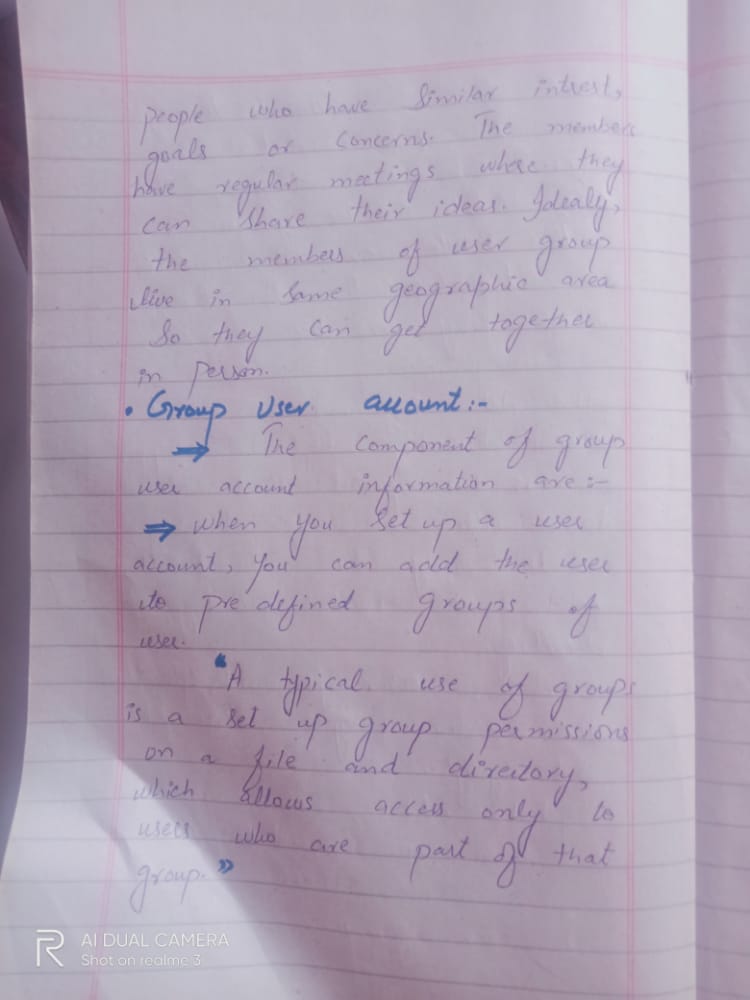 people who have similar intrest,
goals or concerns. The members
have regular meetings where they
can share their ideas. Idealy,
the members of user group
live in same geographic area
So they can get together
in person.
• Group User account:-
⇒ The component of group
user account information are:-
⇒ when you set up a user
account, you can add the user
to pre defined groups of
user.
“A typical use of groups
is a set up group permissions
on a file and directory,
which allows access only to
users who are part of that
group.”
AI DUAL CAMERA
Shot on realme 3